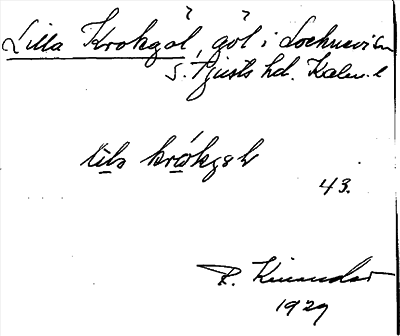 Lilla Krokgöl, göl i Locknevi sn
S. Tjusts hd. Kalm. l
lila krókgøl
43.
R. Kinander
1929